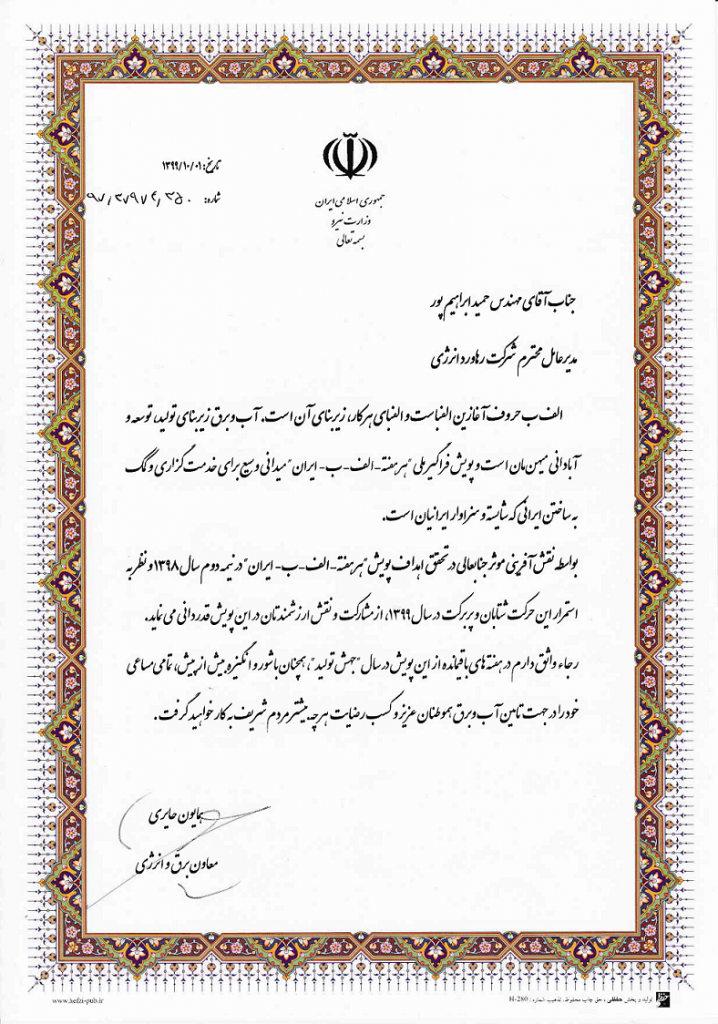 تاریخ: ۱۳۹۹/۱۰/۰۱
شماره:
جمهوری اسلامی ایران
وزارت نیرو
بسمه تعالی
جناب آقای مهندس حمید ابراهیم پور
مدیرعامل محترم شرکت رهاورد انرژی
الف ب حروف آغازین الفباست و الفبای هر کار، زیربنای آن است. آب و برق زیربنای تولید، توسعه و
آبادانی میهن مان است و پویش فراگیر ملی "هرهفته-الف-ب-ایران" میدانی وسیع برای خدمت گزاری و کمک
به ساختن ایرانی که شایسته و سزاوار ایرانیان است.
بواسطه نقش آفرینی موثر جنابعالی در تحقق اهداف پویش "هرهفته-الف-ب-ایران" در نیمه دوم سال ۱۳۹۸ و نظر به
استمرار این حرکت شتابان و پربرکت در سال ۱۳۹۹، از مشارکت و نقش ارزشمندتان در این پویش قدردانی می نماید.
رجاء واثق دارم در هفته های باقیمانده از این پویش در سال "جهش تولید"، همچنان با شور و انگیزه بیش از پیش، تمامی مساعی
خود را در جهت تامین آب و برق هموطنان عزیز و کسب رضایت هرچه بیشتر مردم شریف به کار خواهید گرفت.
همایون حایری
معاون برق و انرژی
www.hefzi-pub.ir
تولید و پخش حفظی، حق چاپ محفوظ. تذهیب شماره: H-280